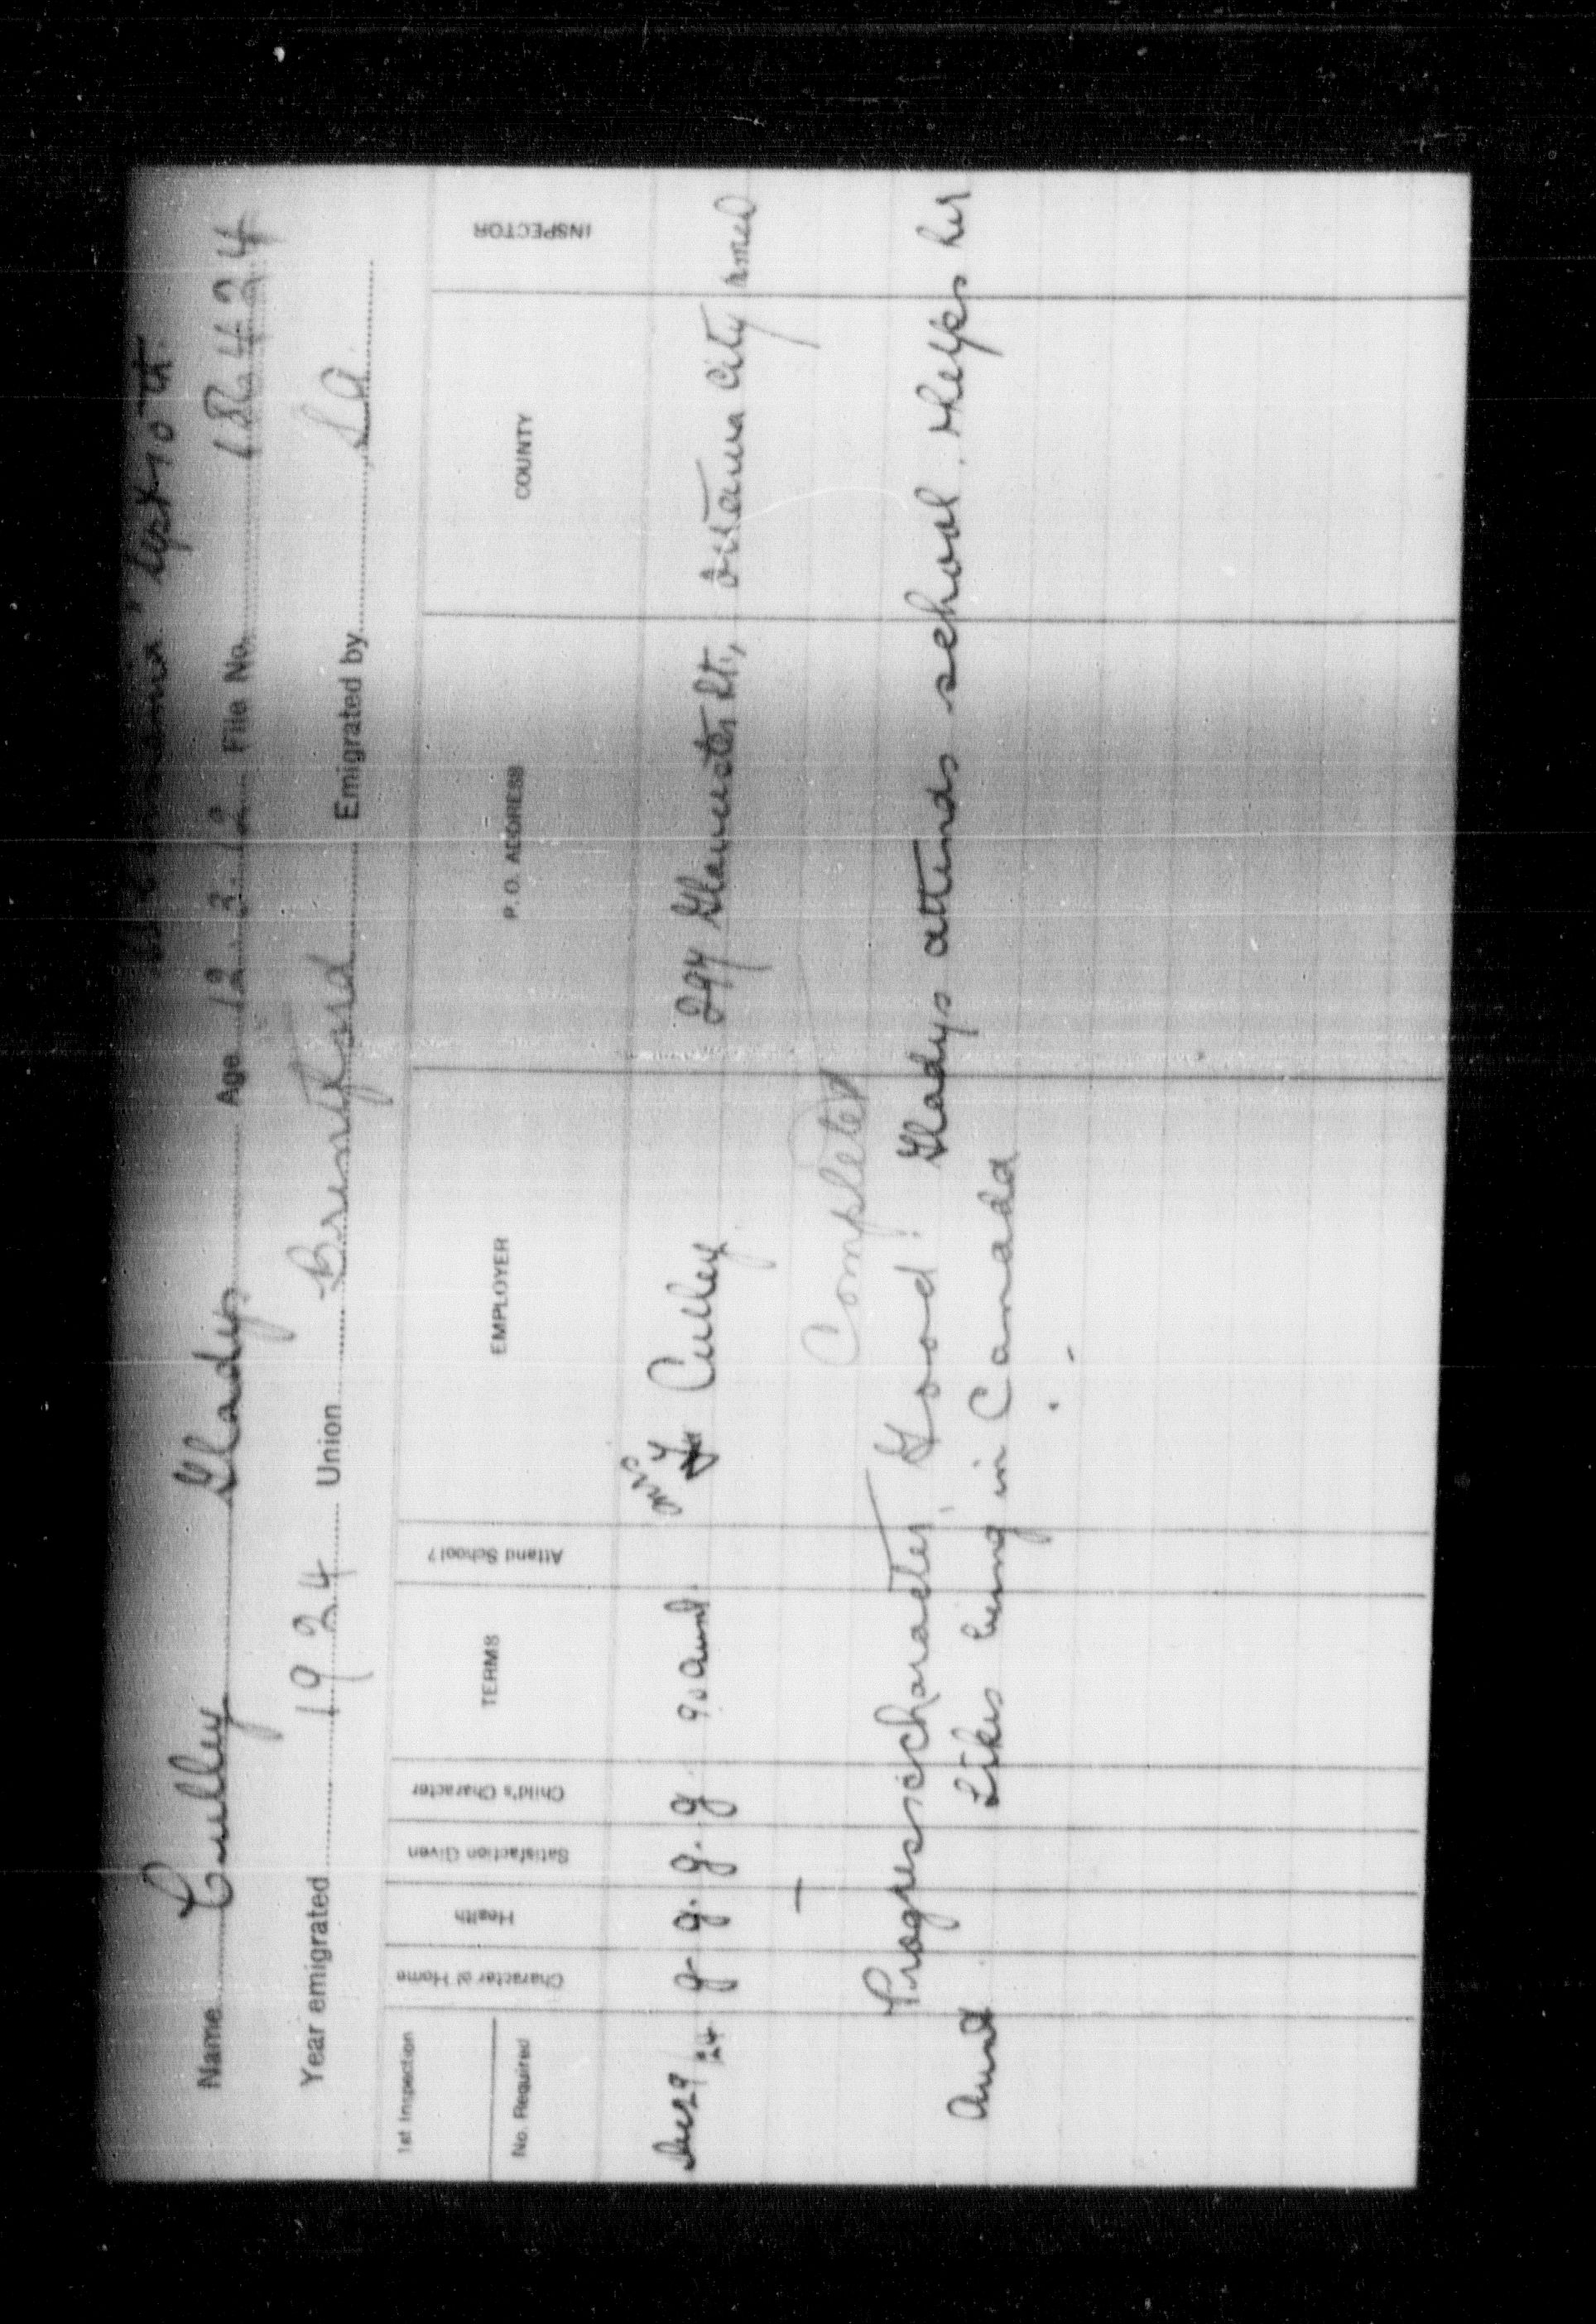 Sept 10th
Name Culley Gladys Age 12. 3. 12 File No. 18424
Year emigrated 1924 Union Brentford Emigrated by S.A.
1st Inspection
No. Required
Character of Home
Health
Satisfaction Given
Child's Character
TERMS
Attend School?
EMPLOYER
P. O. ADDRESS
COUNTY
INSPECTOR
Mrs
Dec 29/24 g g. g. g. Aunt. Culley 297 Gloucester St., Ottawa City
Completed
Progress: character, Good! Gladys attends school. Helps her
Aunt. Likes being in Canada